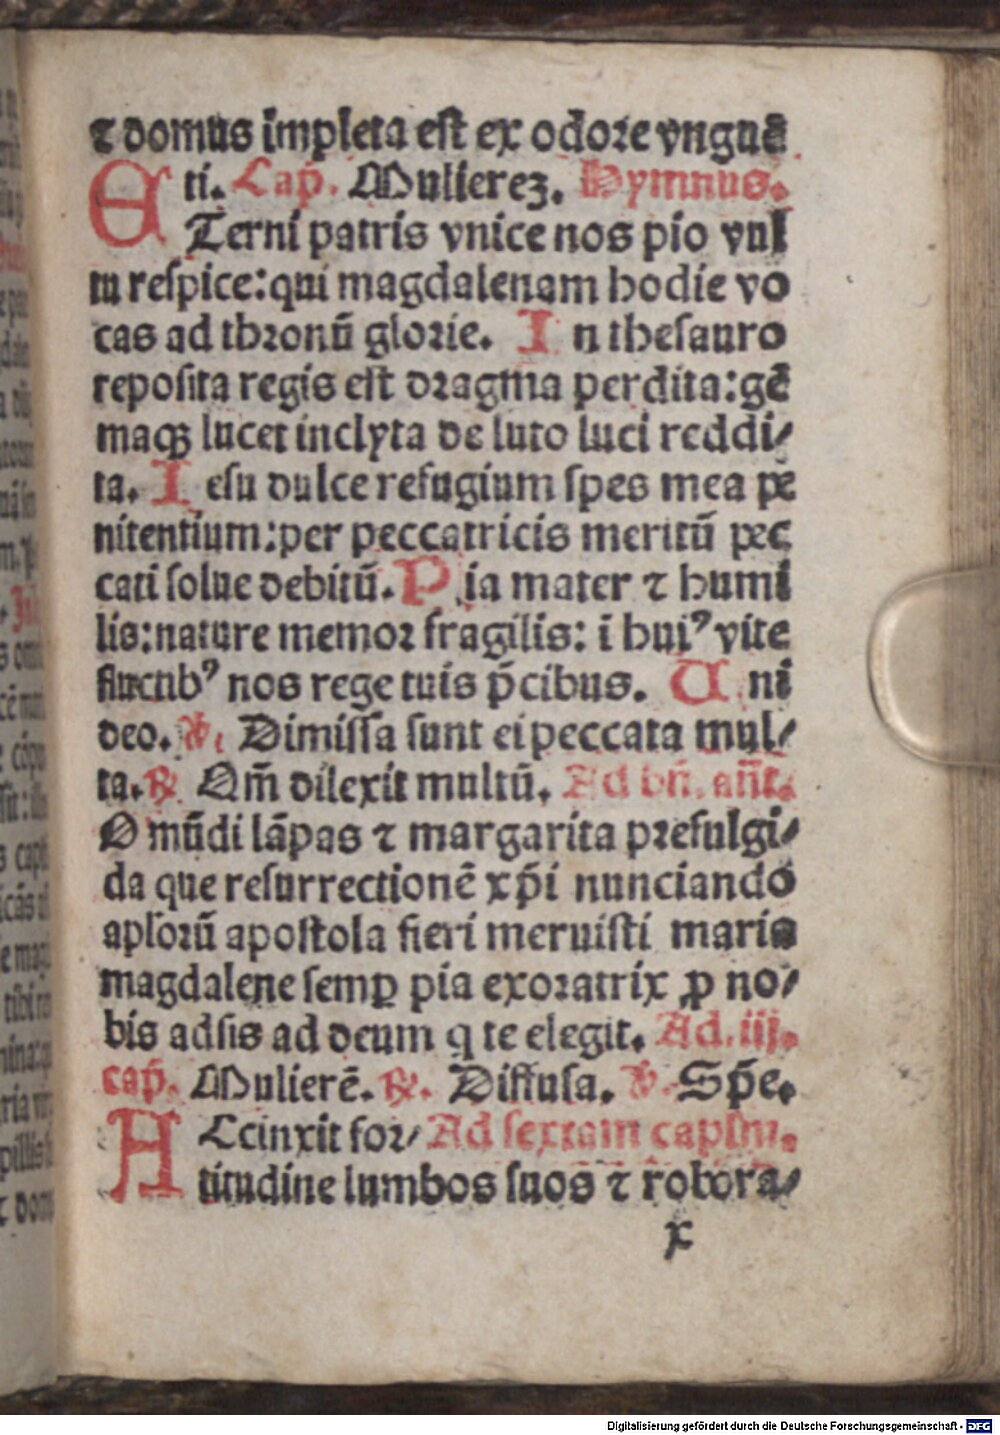 ⁊ domus impleta est ex odore vnguē
ti. Cap̄. Mulierez. Hymnus.
ETerni patris vnice nos pio vul
tu respice: qui magdalenam hodie vo
cas ad thronū glorie. In thesauro
reposita regis est dragma perdita: gē
maqꝫ lucet inclyta de luto luci reddi/
ta. Iesu dulce refugium spes mea pe
nitentium: per peccatricis meritū pec
cati solue debitū. Pia mater ⁊ humi
lis: nature memor fragilis: ī huiꝰ vite
fluctibꝰ nos rege tuis p̄cibus. Uni
deo. ℣. Dimissa sunt ei peccata mul/
ta. ℟. Qm̄ dilexit multū. Ad bn̄. an̄t.
O mūdi lāpas ⁊ margarita prefulgi/
da que resurrectionē xp̄i nunciando
aplorū apostola fieri meruisti maria
magdalene semꝑ pia exoratrix ꝓ no/
bis adsis ad deum q te elegit. Ad. iij.
cap̄. Mulierē. ℟. Diffusa. ℣. Sp̄e.
ACcinxit for/ Ad sextam capſm.
titudine lumbos suos ⁊ robora/
x
Digitalisierung gefördert durch die Deutsche Forschungsgemeinschaft - DFG